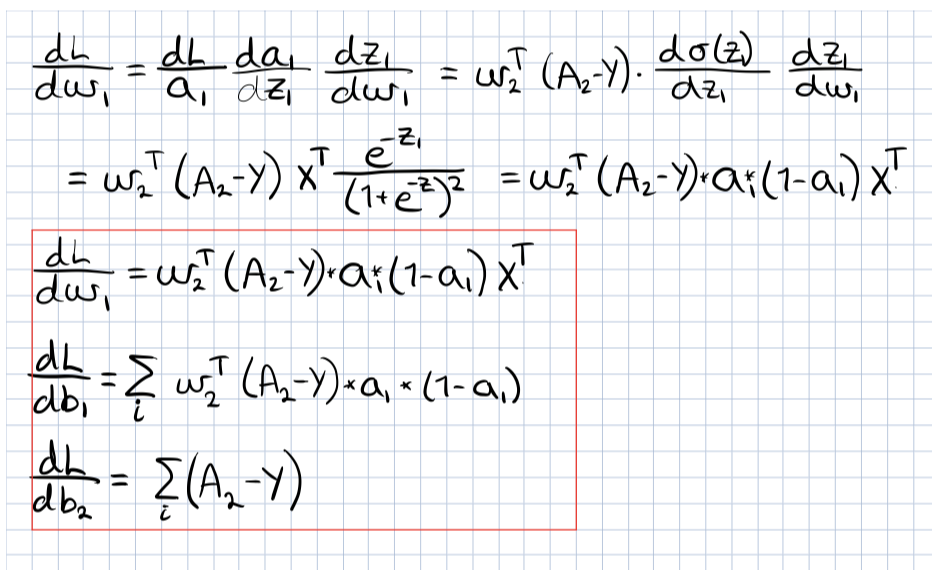 dL/dw₁ = dL/a₁ da₁/dz₁ dz₁/dw₁ = w₂ᵀ (A₂-Y) · dσ(z)/dz₁ dz₁/dw₁
= w₂ᵀ (A₂-Y) Xᵀ e^(-z₁)/(1+e^(-z))² = w₂ᵀ (A₂-Y) * a₁ * (1-a₁) Xᵀ
dL/dw₁ = w₂ᵀ (A₂-Y) * a₁ * (1-a₁) Xᵀ
dL/db₁ = Σᵢ w₂ᵀ (A₂-Y) * a₁ * (1-a₁)
dL/db₂ = Σᵢ (A₂-Y)